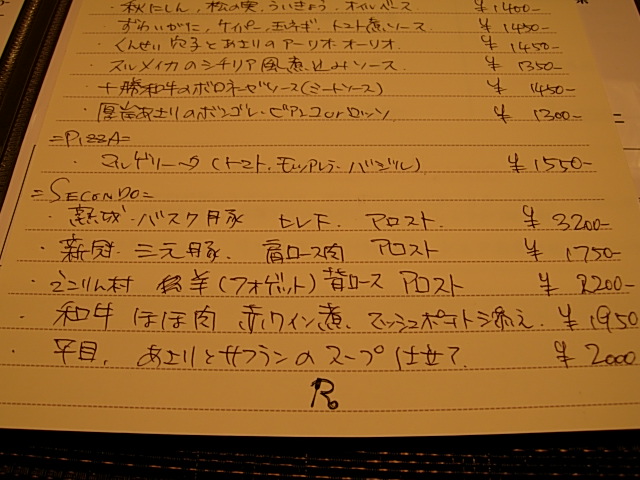 ・秋にしん、松の実、ういきょう、オイルベース ¥1400-
・ずわいがに、ケイパー、玉ネギ、トマト煮ソース ¥1450-
・くんせい穴子とあさりのアーリオ・オーリオ. ¥1450-
・スルメイカのシチリア風煮込みソース. ¥1350-
・十勝和牛のボロネーゼソース(ミートソース) ¥1450-
・厚岸あさりのボンゴレ・ビアンコ or ロッソ ¥1300-
=PIZZA=
・マルゲリータ(トマト、モッツァレラ・バジル) ¥1550-
=SECONDO=
・熟成・バスク豚 ヒレ下. アロスト. ¥3200-
・新冠. 三元豚. 肩ロース肉 アロスト ¥1750-
・えこりん村 羊(フォゲット)背ロース アロスト ¥2200-
・和牛 ほほ肉 赤ワイン煮、マッシュポテト添え. ¥1950
・平目、あさりとサフランのスープ仕立て ¥2000
R.